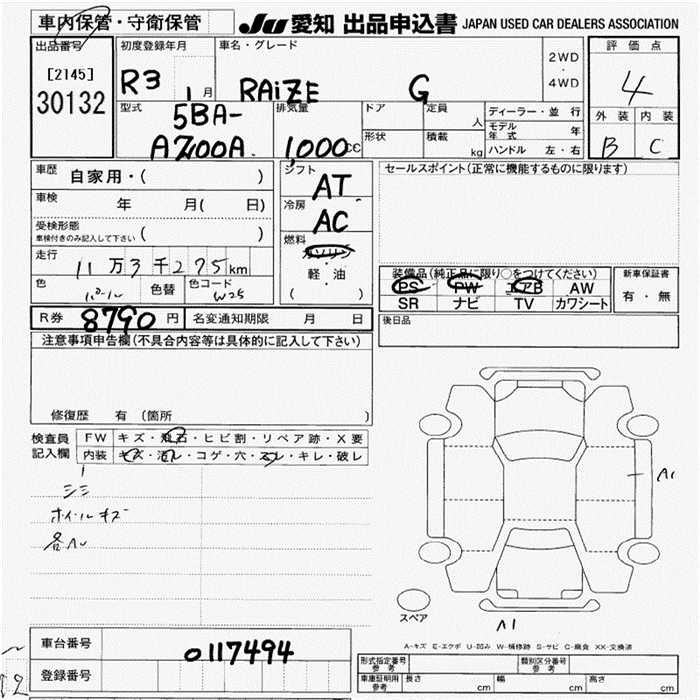 車内保管・守衛保管
JU 愛知 出品申込書 JAPAN USED CAR DEALERS ASSOCIATION
出品番号
[2145]
30132
初度登録年月
R3 1月
車名・グレード
RAIZE G
2WD
・
4WD
評価点
4
外装 内装
B C
型式
5BA-
A200A
排気量
1,000cc
ドア
定員
人
形状
積載
kg
ディーラー・並行
モデル年式 年
ハンドル 左・右
車歴
自家用・( )
車検
年 月( 日)
受検形態
車検付きのみ記入して下さい ( )
走行
11万3千275km
色
パール
色替
色コード
W25
シフト
AT
冷房
AC
燃料
ガソリン
・
軽油
( )
セールスポイント(正常に機能するものに限ります)
装備品(純正品に限り○をつけてください)
PS PW エアB AW
SR ナビ TV カワシート
新車保証書
有・無
R券 8790円
名変通知期限 月 日
後日品
注意事項申告欄(不具合内容等は具体的に記入して下さい)
修復歴 有(箇所 )
検査員
記入欄
FW キズ・飛石・ヒビ割・リペア跡・X要
内装 キズ・汚レ・コゲ・穴・スレ・キレ・破レ
シミ
ホイールキズ
各ヘ
A1
A1
スペア
A-キズ E-エクボ U-凹み W-補修跡 S-サビ C-腐食 XX-交換済
車台番号
0117494
登録番号
形式指定番号
参考
類別区分番号
参考
車庫証明用
参考
長さ cm
幅 cm
高さ cm